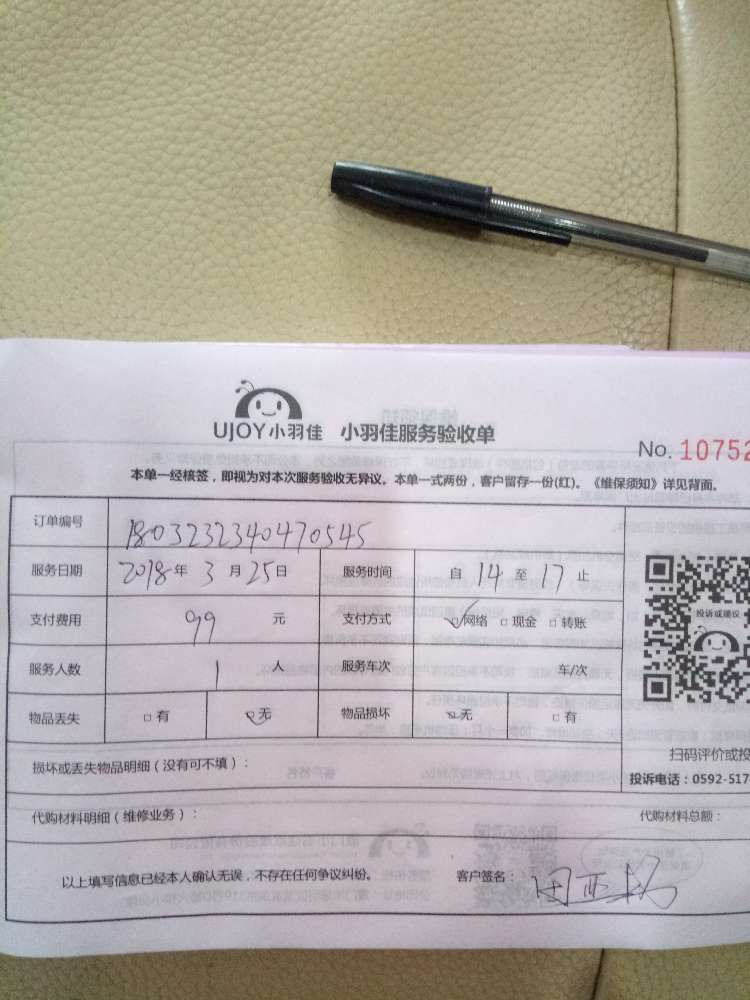 UJOY小羽佳 小羽佳服务验收单
No. 10752
本单一经核签，即视为对本次服务验收无异议。本单一式两份，客户留存一份(红)。《维保须知》详见背面。
订单编号 1803232340470545
服务日期 2018年3月25日 服务时间 自14至17止
支付费用 99 元 支付方式 ☑网络 □现金 □转账
投诉或建议
服务人数 1 人 服务车次 车/次
物品丢失 □有 ☑无 物品损坏 ☑无 □有
扫码评价或投
损坏或丢失物品明细（没有可不填）：
投诉电话：0592-517
代购材料明细（维修业务）：
代购材料总额：
以上填写信息已经本人确认无误，不存在任何争议纠纷。 客户签名：